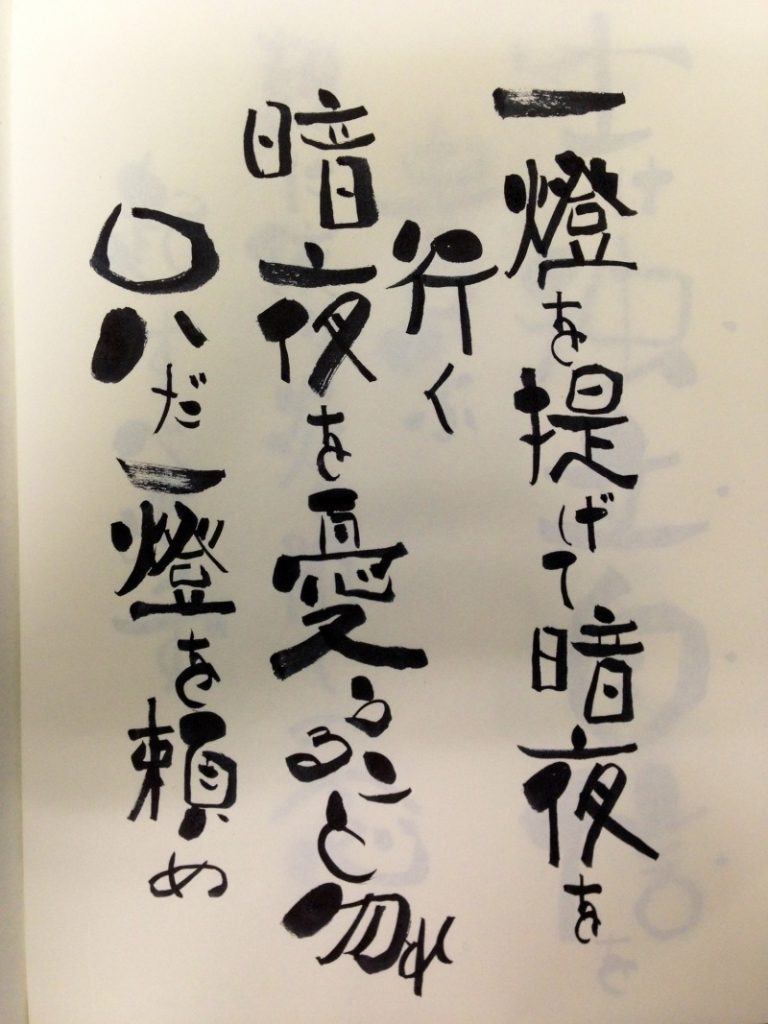 一燈を提げて暗夜を
行く
暗夜を憂うること勿れ
只だ一燈を頼め